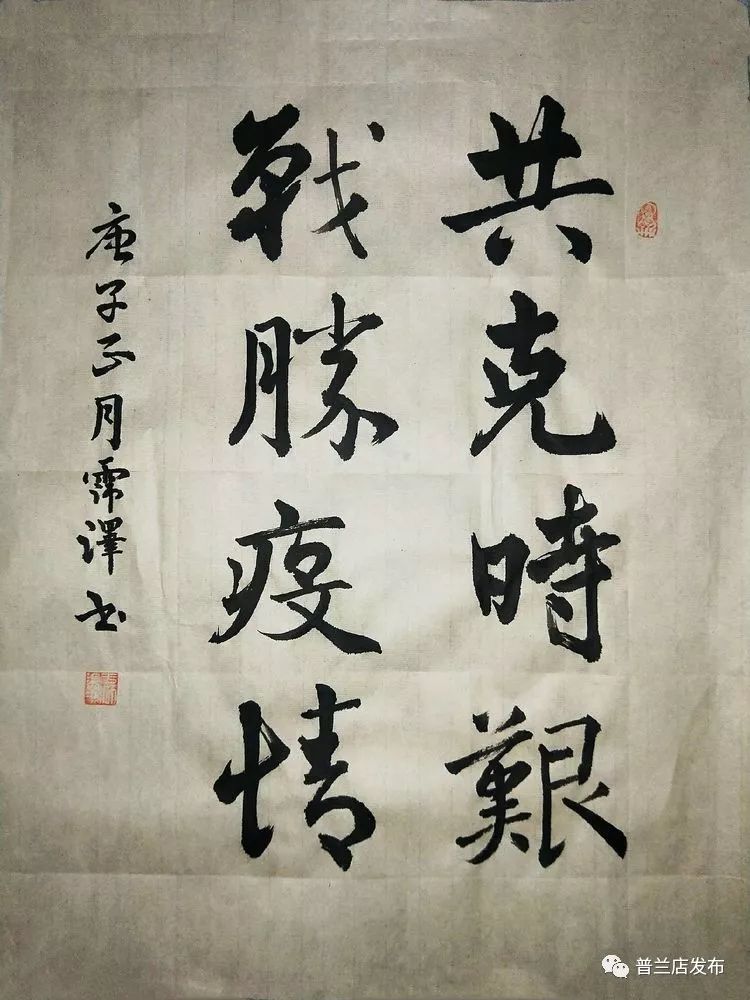 共克時艱
戰勝疫情
庚子正月霈澤书
普兰店发布